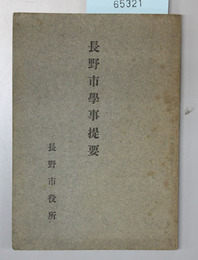 65321
長野市學事提要
長野市役所